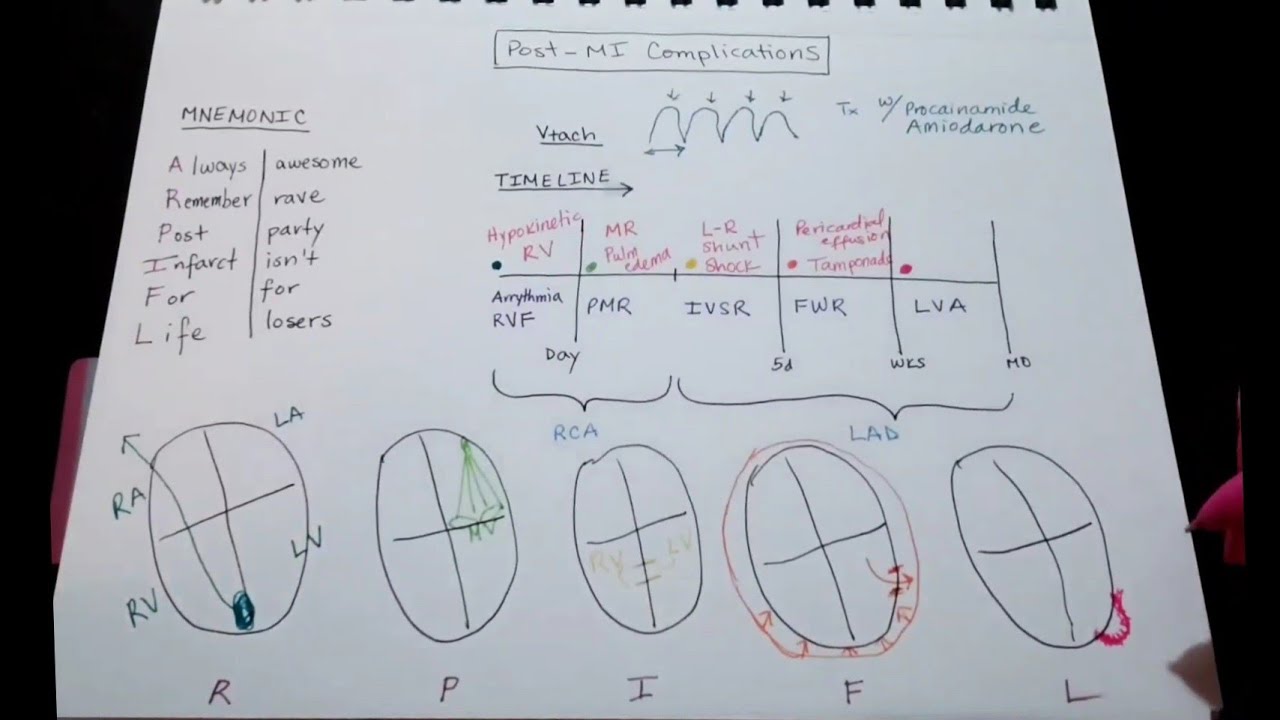 Post-MI Complications
MNEMONIC
Always awesome
Remember rave
Post party
Infarct isn't
For for
Life losers
Vtach
Tx w/ Procainamide
Amiodarone
TIMELINE
Hypokinetic
RV
MR
Pulm
edema
L-R
shunt
Shock
Pericardial
effusion
Tamponade
Arrythmia
RVF
PMR
IVSR
FWR
LVA
Day
5d
WKS
MO
RCA
LAD
LA
RA
LV
RV
MV
RV
LV
R
P
I
F
L